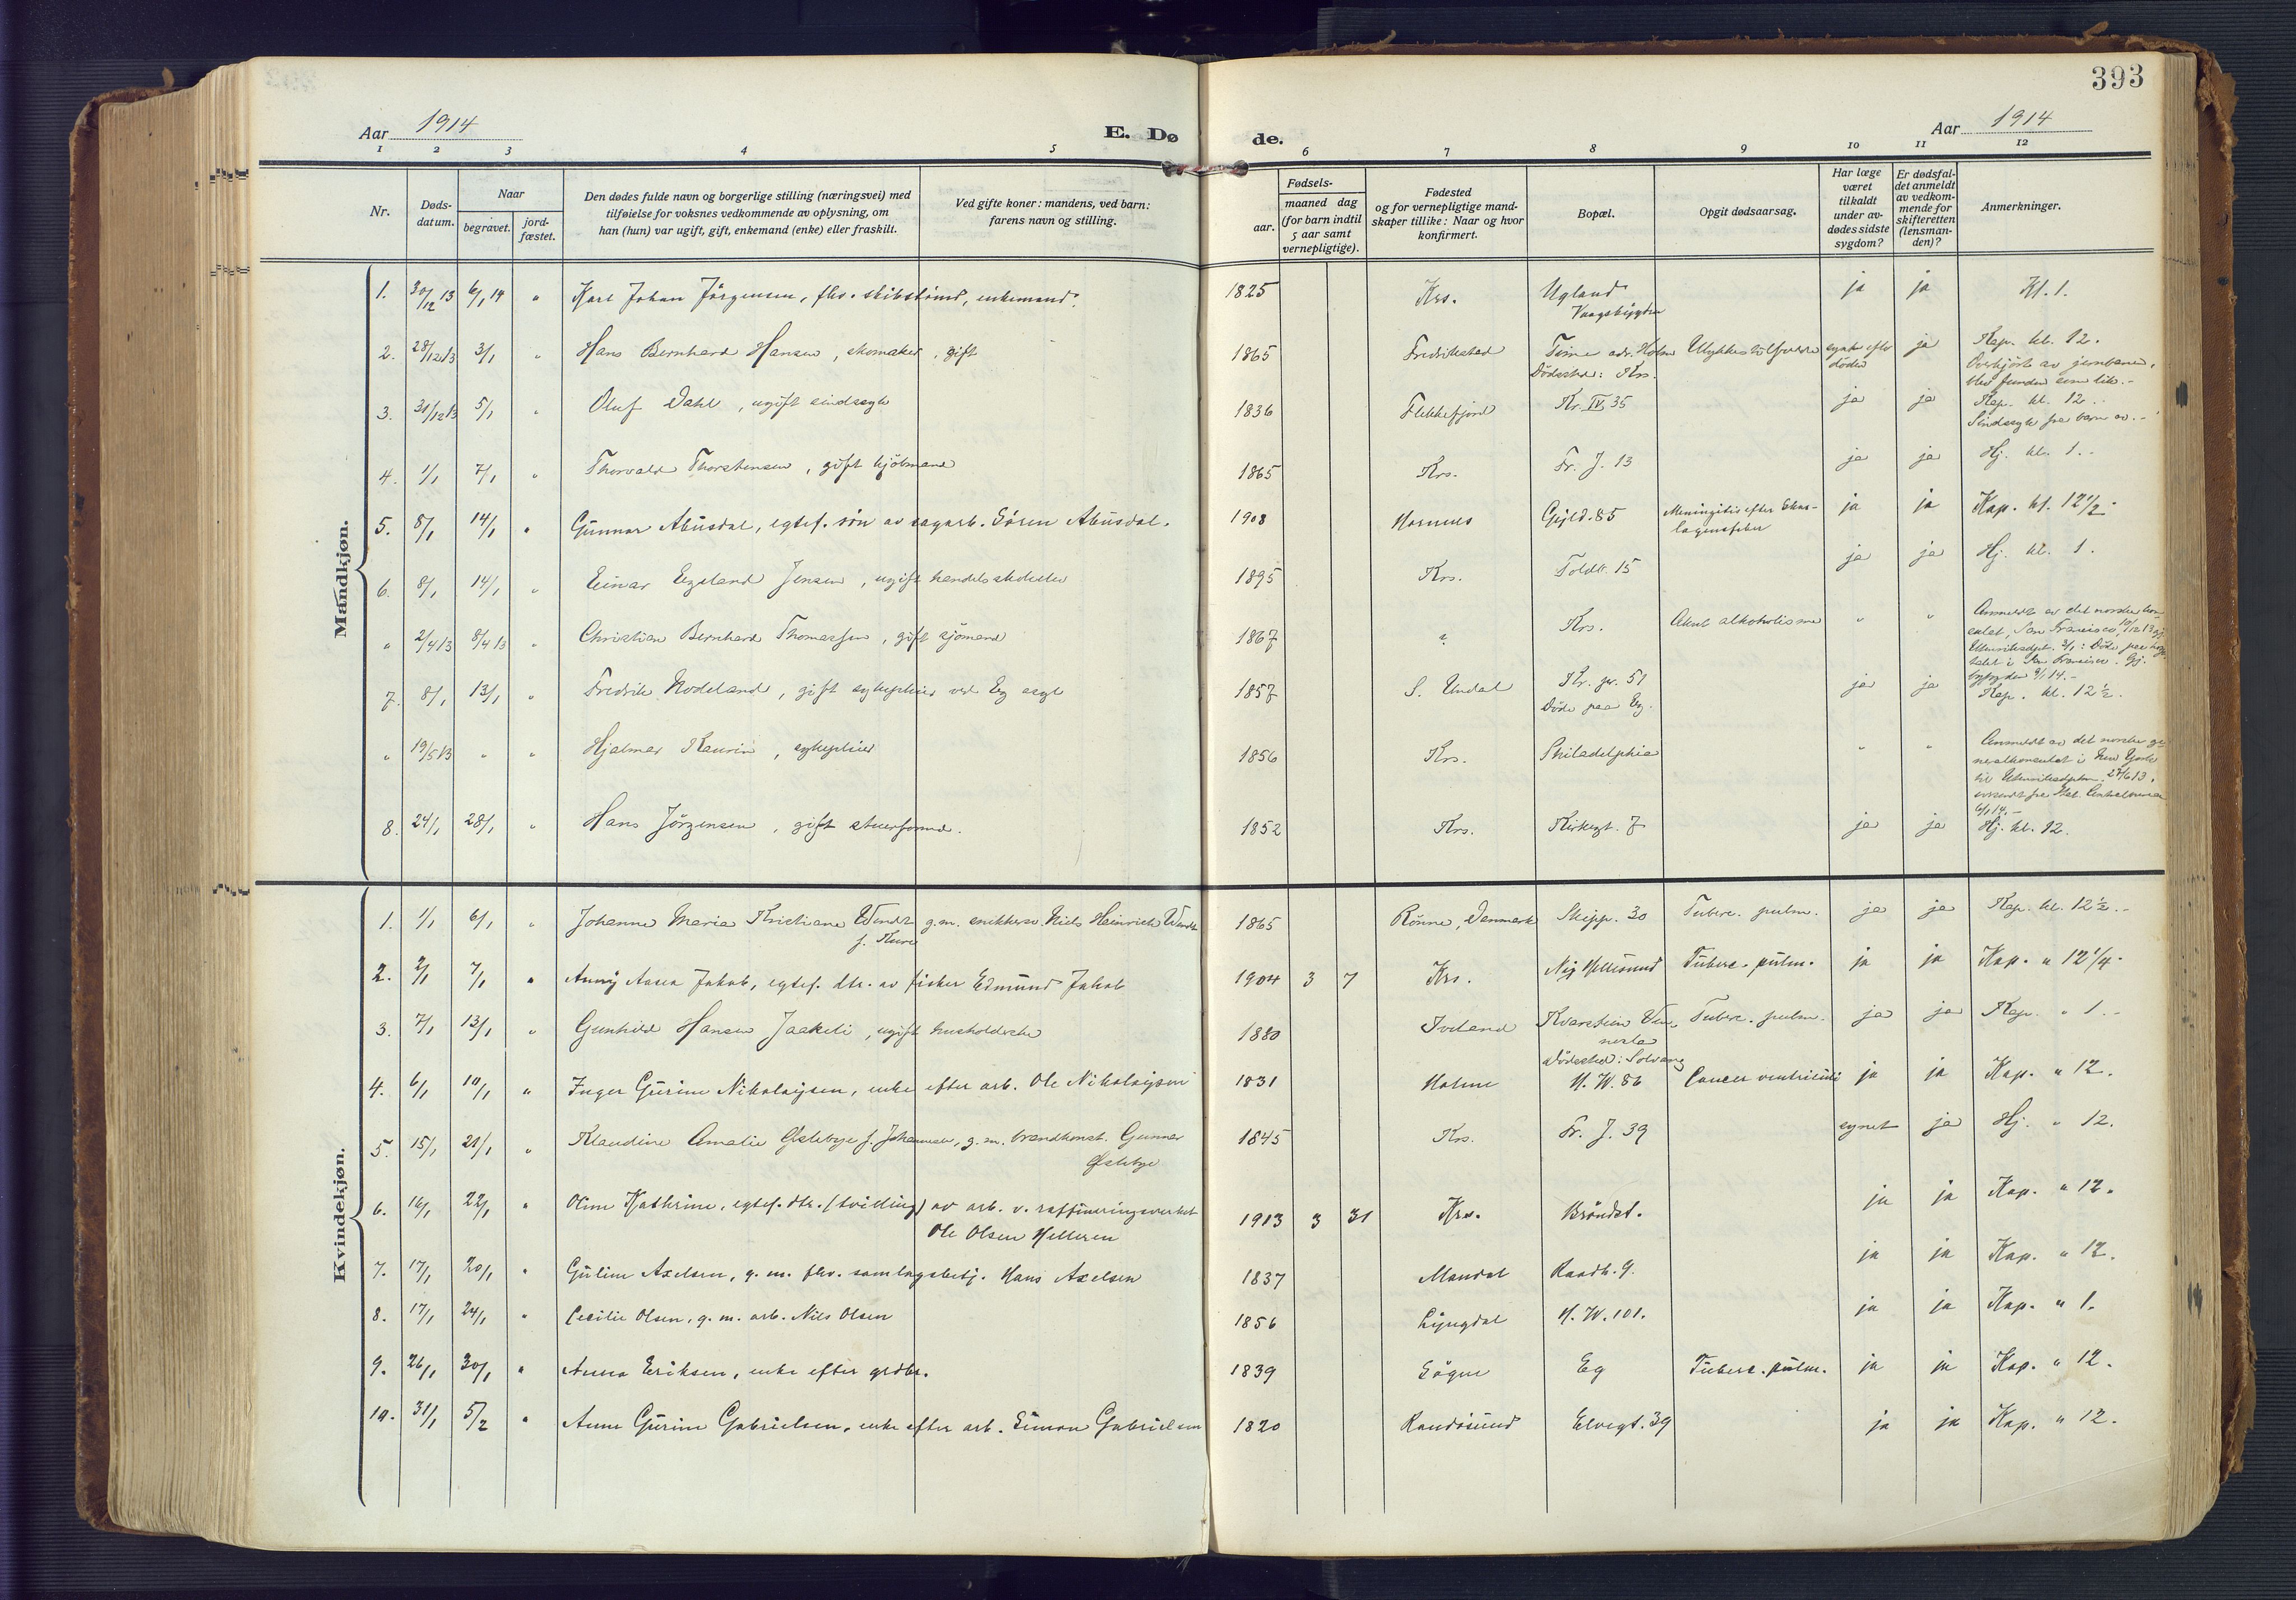 393
Aar 1914
E. Dø de.
Aar 1914
1 2 3 4 5 6 7 8 9 10 11 12
Nr.
Døds-datum.
Naar
begravet.
jord-fæstet.
Den dødes fulde navn og borgerlige stilling (næringsvei) med
tilføielse for voksnes vedkommende av oplysning, om
han (hun) var ugift, gift, enkemand (enke) eller fraskilt.
Ved gifte koner: mandens, ved barn:
farens navn og stilling.
Fødsels-
aar.
maaned dag
(for barn indtil
5 aar samt
vernepligtige).
Fødested
og for vernepligtige mand-
skaper tillike: Naar og hvor
konfirmert.
Bopæl.
Opgit dødsaarsag.
Har læge
været
tilkaldt
under av-
dødes sidste
sygdom?
Er dødsfal-
det anmeldt
av vedkom-
mende for
skifteretten
(lensman-
den)?
Anmerkninger.
Mandkjøn.
1. 30/12 13 6/1 14 " Karl Johan Jørgensen, fhv. skibstømd, enkemand. 1825 Krs. Ugland ja ja Kl. 1.
Vaagsbygden
2. 28/12 13 3/1 " Hans Bernhard Hansen, skomaker, gift 1865 Fredrikstad Ulykkestilfælde synet efter ja Kap. kl. 12.
Dödssted: Krs. döden Overkjört av jernbanen,
blev funden som lik. -
3. 31/12 13 5/1 " Oluf Dahl, ugift sindssyk 1836 Flekkefjord Kr. IV, 35 ja ja Kap. kl. 12.
Sindssyk fra barn av. -
4. 1/1 7/1 " Thorvald Thorstensen, gift kjøbmand 1865 Krs. Fr. J. 13 ja ja Hj. kl. 1. -
5. 8/1 14/1 " Gunnar Abusdal, egtef. søn av sagarb. Søren Abusdal. 1908 Hornnes Gyld. 85 Meningitis efter ja ja Kap. kl. 12 1/2.
6. 8/1 14/1 " Einar Egeland Jensen, ugift handelsskoleelev 1895 Krs. Toldb. 15 ja ja Hj. kl. 1.
" 2/4 13 8/4 13 " Christian Bernhard Thomassen, gift sjömand 1867 " Krs. Akut alkoholisme " " Anmeldt av det norske kon-
sulat, San Francisco, 10/12 13
3/1: Döde paa hospi-
talet i San Francisco.
9/1 14. -
7. 8/1 13/1 " Fredrik Nodeland, gift sykepleier ved Eg asyl 1857 S. Undal Kr. gr. 51 ja ja Kap. kl. 12 1/2.
Döde paa Eg.
" 19/5 13 " " Hjalmar Kaurin, sykepleier 1856 Krs. Philadelphia " " Anmeldt av det norske ge-
neralkonsulat i New York
27/6 13,
6/1 14. -
8. 24/1 28/1 " Hans Jörgensen, gift styrmand. 1852 Krs. Kirkegt. 7 ja ja Hj. kl. 12.
Kvindekjøn.
1. 1/1 6/1 " Johanne Maria Kristiane Wendt g. m. snikkersv. Niels Heinrich Wendt 1865 Rönne, Danmark Skipp. 30 Tuberc. pulm. ja ja Kap. kl. 12 1/2. -
f. Kure
2. 2/1 7/1 " Anny Aasea Jakob, egtef. dtr. av fisker Edmund Jakob 1904 3 7 Krs. Ny Hellesund Tuberc. pulm. ja ja Kap. " 12 1/4.
3. 7/1 13/1 " Gunhild Hansen Jaakeli, ugift husholderske 1880 Iveland Kvarstein Ven- Tuberc. pulm. ja ja Kap. " 1. -
nesla
Dödssted: Solvang
4. 6/1 10/1 " Inger Gurine Nikolaysen, enke efter arb. Ole Nikolaysen 1831 Holme H. W. 86 Cancer ventriculi ja ja Kap. " 12.
5. 15/1 21/1 " Klaudine Amalie Gslebye f. Johannesen, g. m. brandkonst. Gunnar 1845 Krs. Fr. J. 39 synet ja Hj. " 12.
6. 16/1 22/1 " Oline Kathrine, egtef. dtr. (tvilling) av arb. v. raffineringsverket 1913 3 31 Krs. Bröndst. ja ja Kap. " 12.
Ole Olsen Helleren
7. 17/1 20/1 " Guline Axelsen, g. m. fhv. samlagsbetj. Hans Axelsen 1837 Mandal Raadh. 9. ja ja Kap. " 12.
8. 17/1 24/1 " Cecilie Olsen, g. m. arb. Nils Olsen 1856 Lyngdal H. W. 101. ja ja Kap. " 1.
9. 26/1 30/1 " Anna Eriksen, enke efter grdbr. 1839 Søgne Eg Tuberc. pulm. ja ja Kap. " 12.
10. 31/1 5/2 " Anne Gurine Gabrielsen, enke efter arb. Simon Gabrielsen 1820 Randøsund Elvegt. 39 ja ja Kap. " 12.